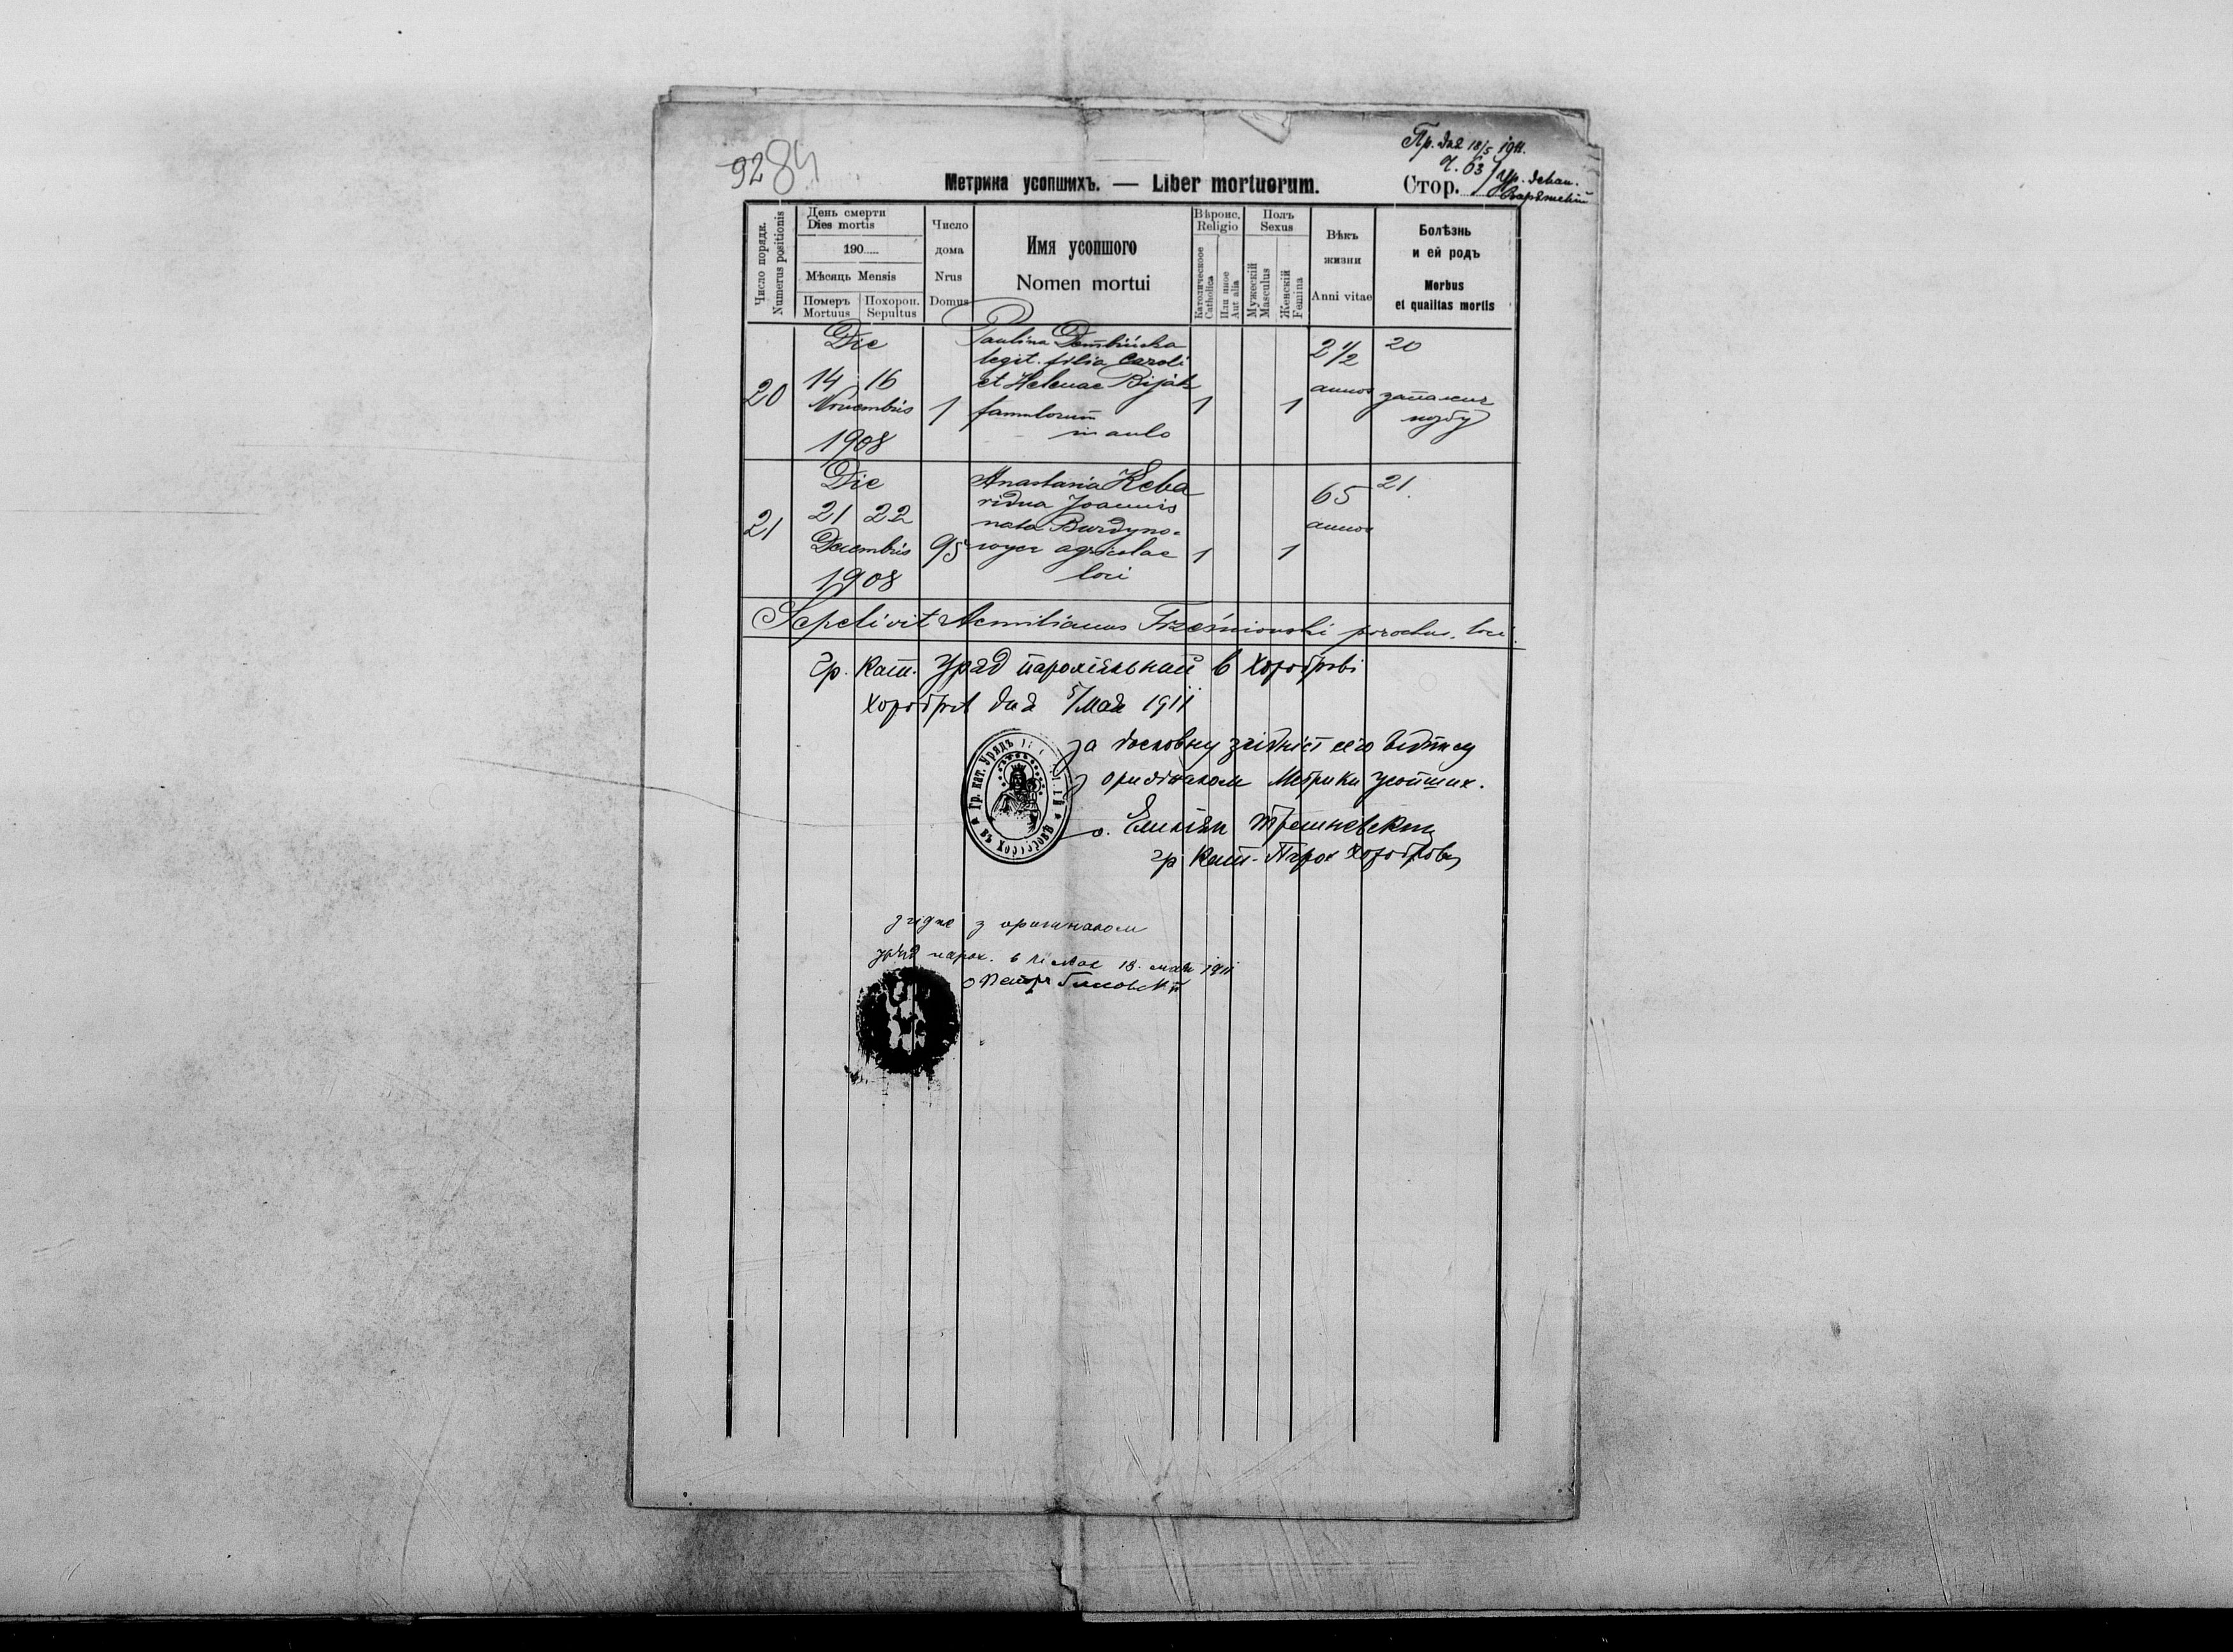 Пр. дня 18/5 1911.
Ч. 63
92 84
Метрика усопшихъ. — Liber mortuorum.
Стор.
Число порядк.
Numerus positionis
День смерти
Dies mortis
190.....
Мѣсяць Mensis
Померъ
Mortuus
Похорон.
Sepultus
Число
дома
Nrus
Domus
Имя усопшого
Nomen mortui
Вѣроис.
Religio
Католическое
Catholica
Или иное
Aut alia
Полъ
Sexus
Мужескій
Masculus
Женскій
Femina
Вѣкъ
жизни
Anni vitae
Болѣзнь
и ей родъ
Morbus
et qualitas mortis
20
Die
14 16
Novembris
1908
1
Paulina
legit. filia Caroli
et Helenae Bijak
famulorum
in aulo
1
1
2 1/2
annos
20
21
Die
21 22
Decembris
1908
95
Anastasia Keba
vidua Joannis
nata Burdyno-
wycz agricolae
loci
1
1
65
annos
21.
Sepelivit Aemilianus Trześniowski parochus loci.
Гр. Кат. Уряд парохіяльний в Хороброві
Хоробрів дня 5/мая 1911
За дословну згідність сего відпису
з оригіналом Метрики усопших.
о. Еміліян Трешневский
гр. кат. Парох Хороброва
Гр. кат. Урядъ
згідне з оригиналом
уряд парох. в 18. мая 1911
о Петръ